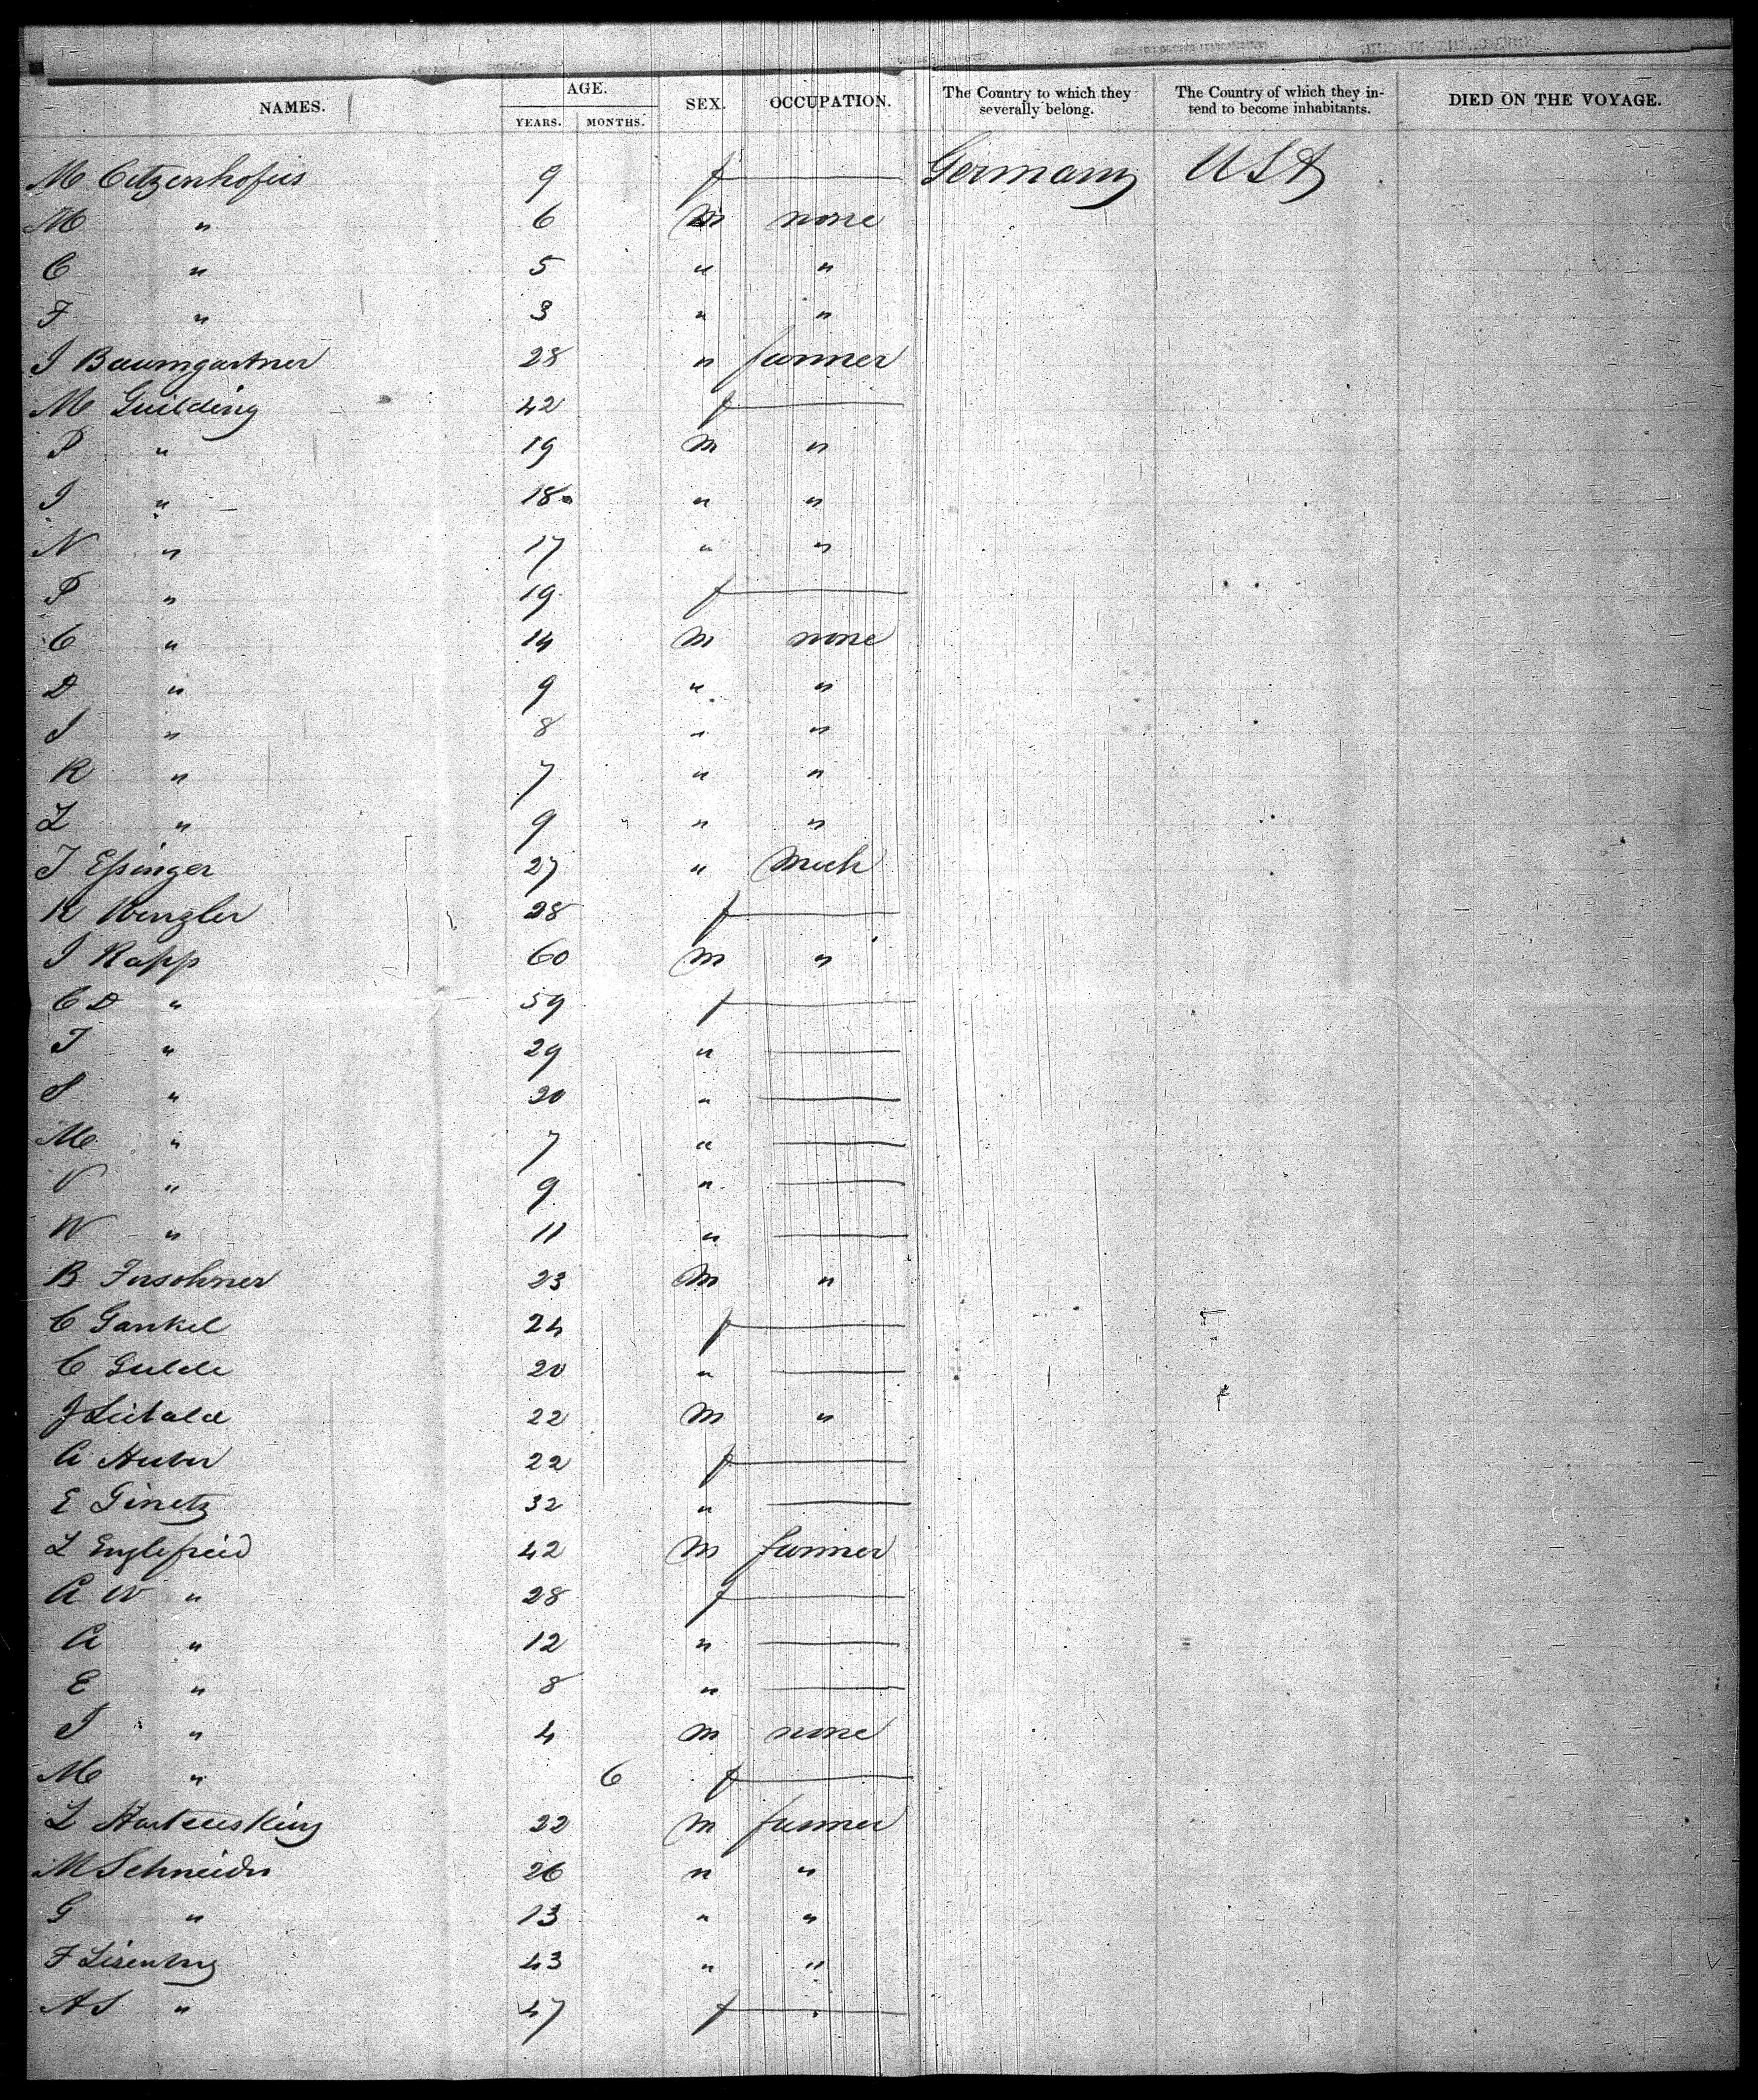 NAMES. AGE. SEX. OCCUPATION. The Country to which they severally belong. The Country of which they intend to become inhabitants. DIED ON THE VOYAGE.
YEARS. MONTHS.
M Citzenhofeis 9 f — Germany USA
M " 6 m none
C " 5 " "
F " 3 " "
J Baumgartner 28 " farmer
M Guilding 42 f —
P " 19 m "
J " 18 " "
N " 17 " "
P " 19 f —
C " 14 m none
D " 9 " "
J " 8 " "
K " 7 " "
L " 9 " "
J Essinger 27 " Mech
K Wenzler 28 f —
J Rapp 60 m "
C D " 59 f —
J " 29 " —
S " 20 " —
M " 7 " —
V " 9 " —
W " 11 " —
B Fersohner 23 m "
C Gankel 24 f —
C Gulde 20 " —
J Leibald 22 m "
A Huber 22 f —
E Ginetz 32 " —
L Englefried 42 m farmer
A W " 28 f —
A " 12 " —
E " 8 " —
J " 4 m none
M " 6 f —
L 22 m farmer
M Schneider 26 " "
G " 13 " "
F Lisenbrg 43 " "
A S " 47 f —